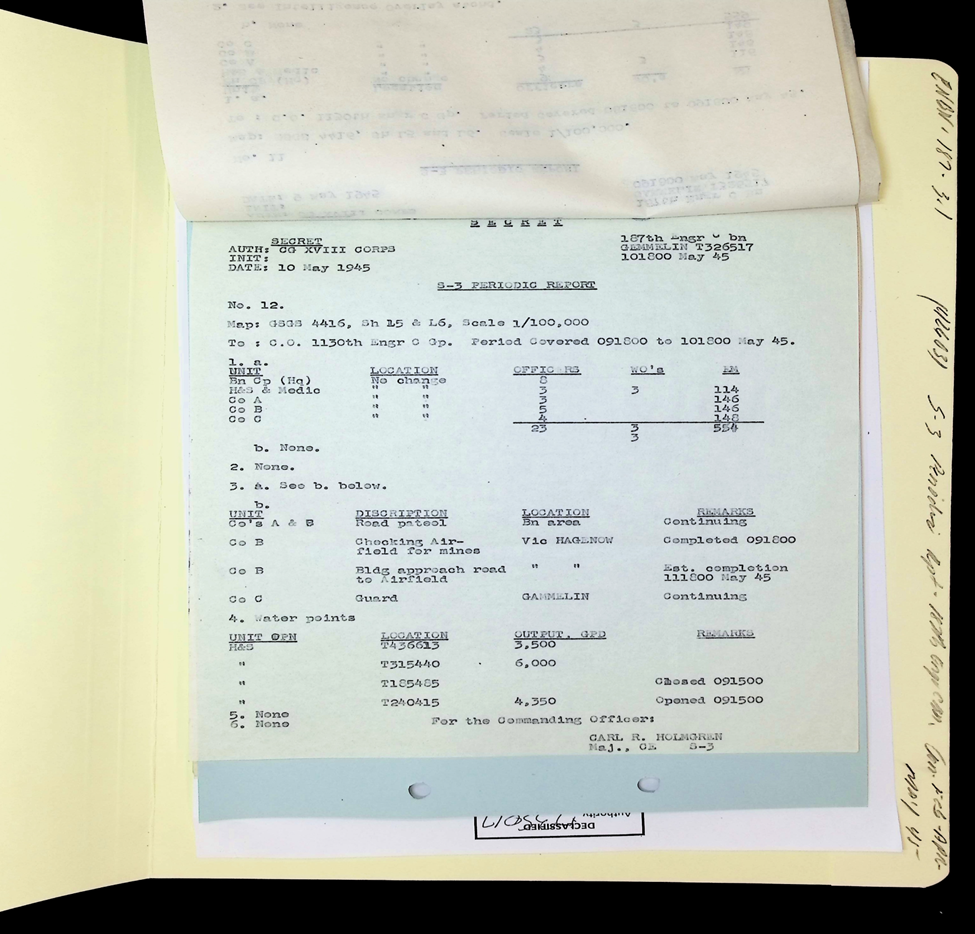 S E C R E T
SECRET 187th Engr C bn
AUTH: CG XVIII CORPS GEMMELIN T326517
INIT: 101800 May 45
DATE: 10 May 1945
S-3 PERIODIC REPORT
No. 12.
Map: GSGS 4416, Sh L5 & L6, Scale 1/100,000
To : C.O. 1130th Engr C Gp. Period Covered 091800 to 101800 May 45.
1. a.
UNIT LOCATION OFFICERS WO's EM
Bn Cp (Hq) No change 8
H&S & Medic " " 3 3 114
Co A " " 3 146
Co B " " 5 146
Co C " " 4 148
23 3 554
3
b. None.
2. None.
3. a. See b. below.
b.
UNIT DISCRIPTION LOCATION REMARKS
Co's A & B Road pateol Bn area Continuing
Co B Checking Air- Vic HAGENOW Completed 091800
field for mines
Co B Bldg approach road " " Est. completion
to Airfield 111800 May 45
Co C Guard GAMMELIN Continuing
4. Water points
UNIT OPN LOCATION OUTPUT, GPD REMARKS
H&S T436613 3,500
" T315440 6,000
" T185485 Closed 091500
" T240415 4,350 Opened 091500
5. None For the Commanding Officer:
6. None
CARL R. HOLMGREN
Maj., CE S-3
DECLASSIFIED
Authority
ENBN-187-3.1
S-3 Periodic Rpt-
May 45